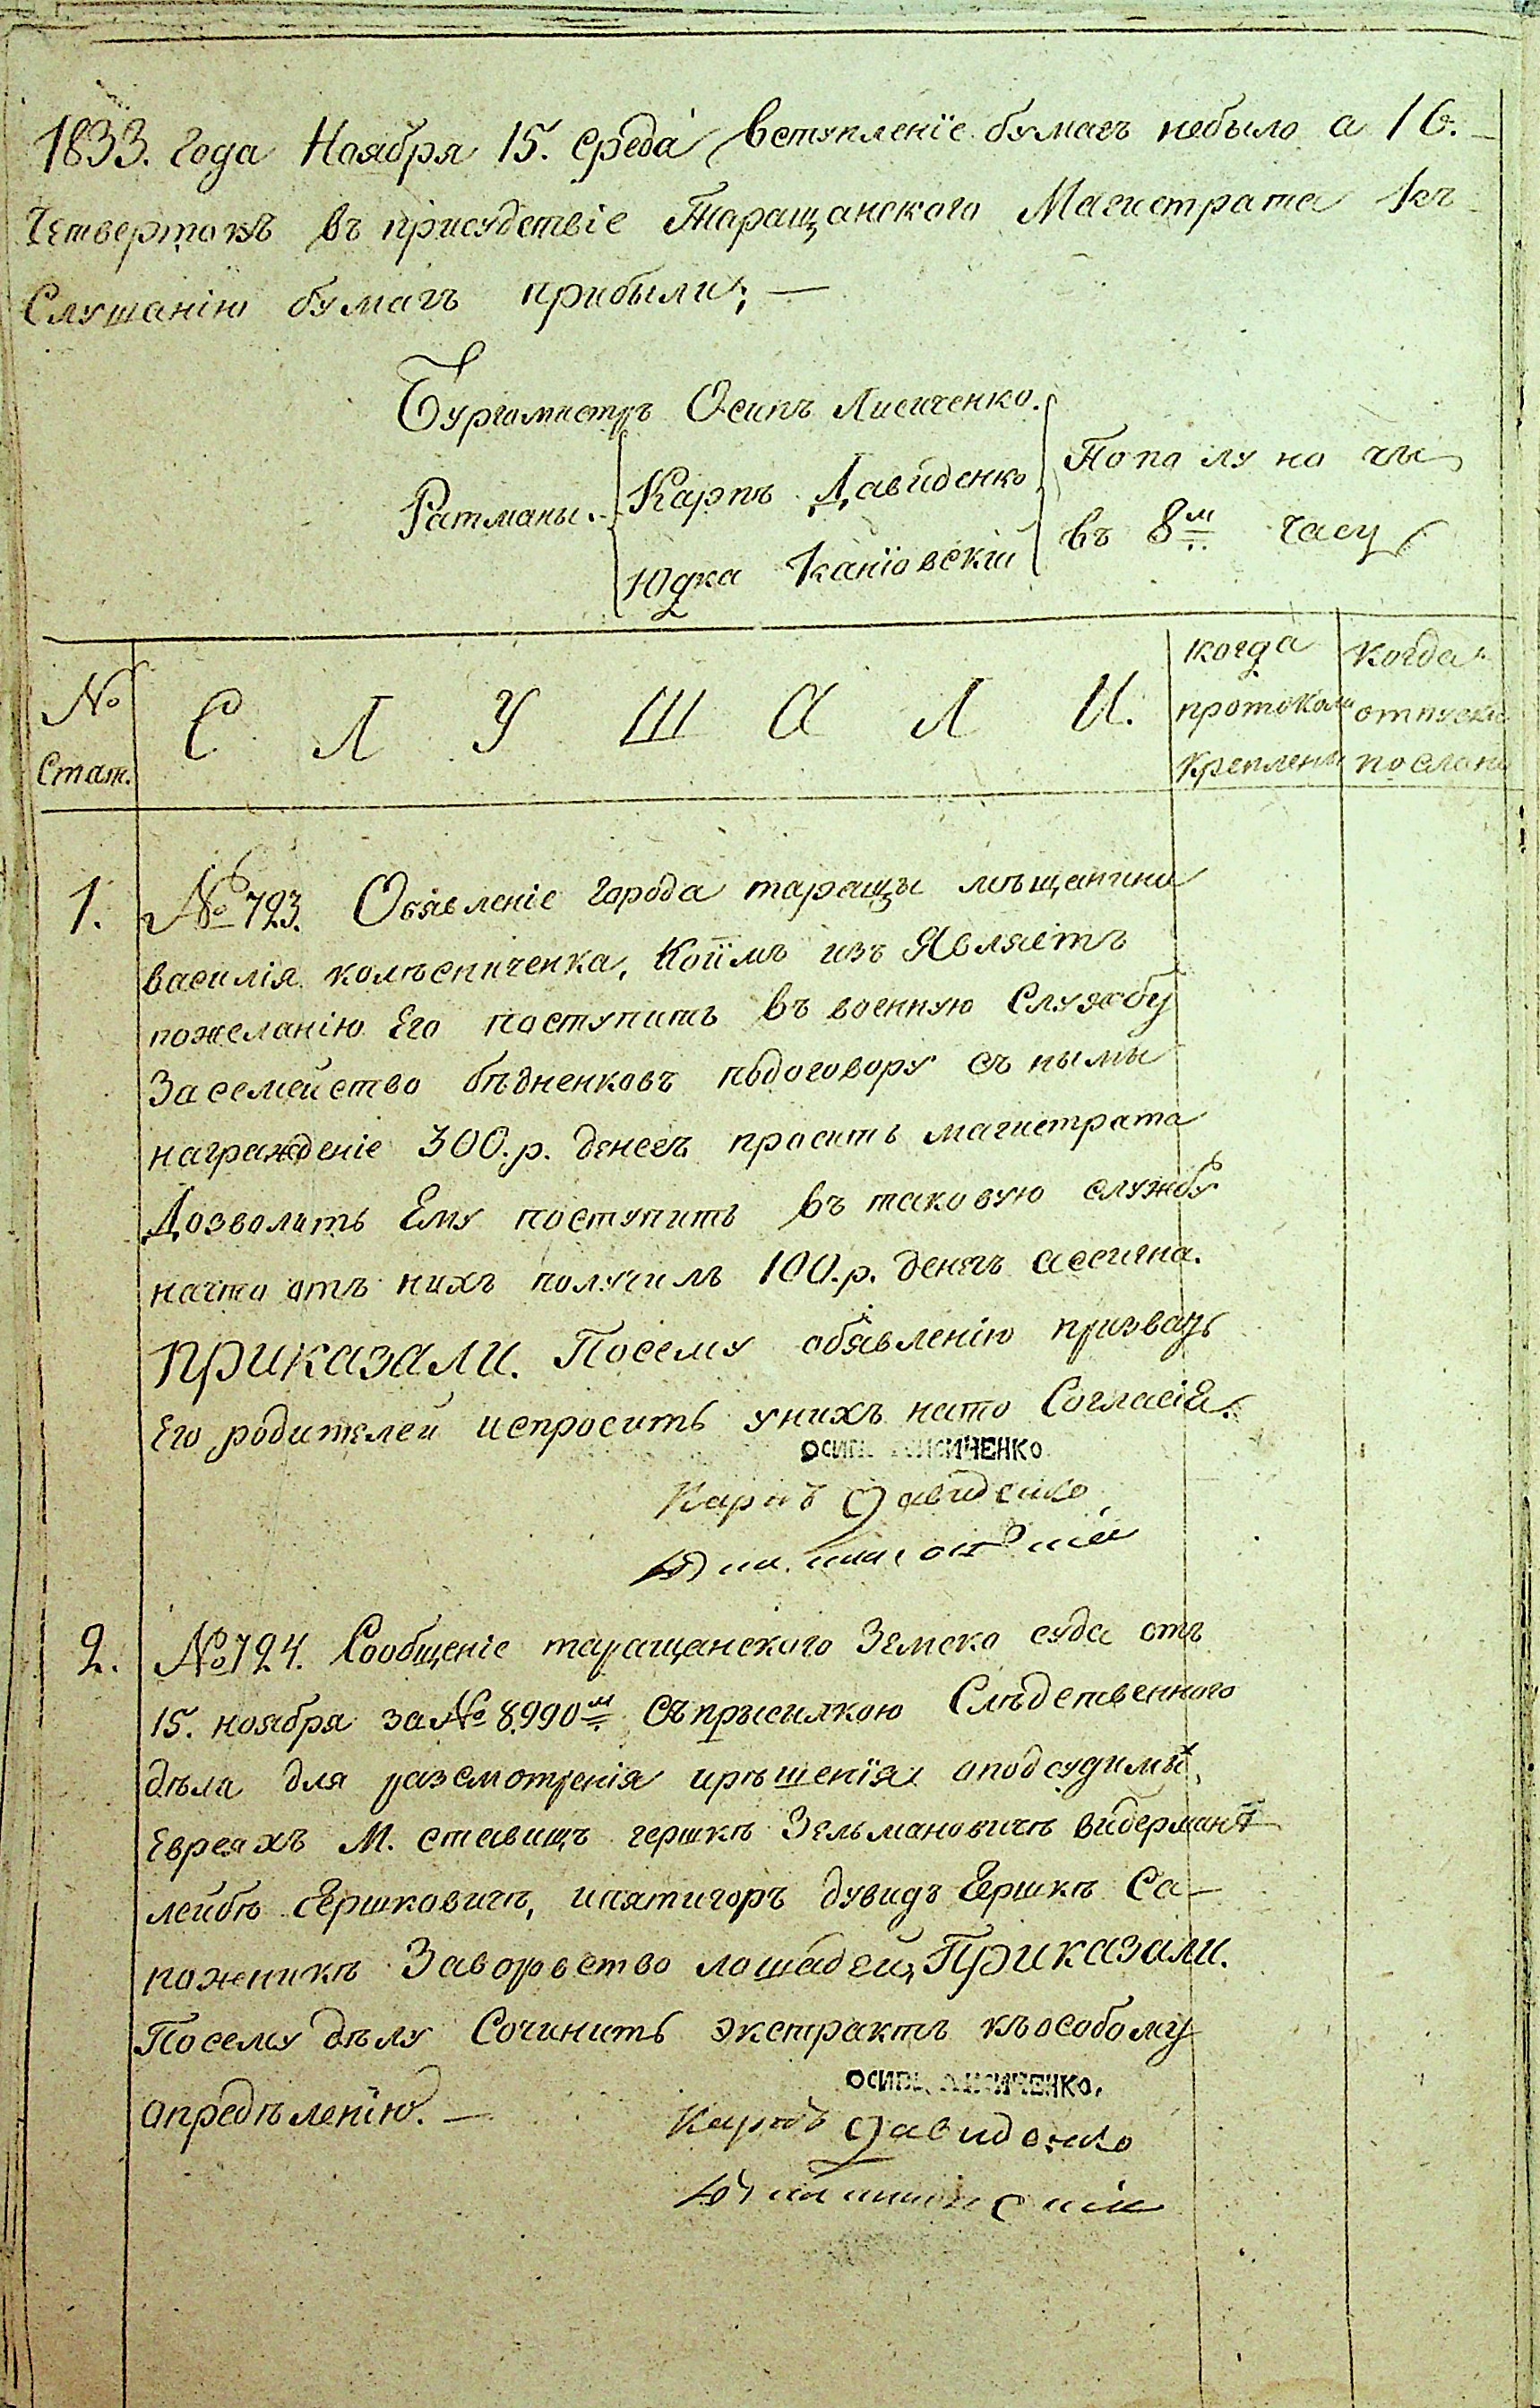 1833. года Ноября 15. среда вступленіе бумагъ небыло а 16.
Четвертокъ въ присудствіе Таращанского Магистрата къ
Слушанію бумагъ прибыли; —
Бургомистръ Осипъ Лисиченко.
Ратманы. Карпъ Давиденко По полу но чи
Юдка Каніовскій въ 8м часу
№ Стат.
С Л У Ш А Л И.
когда протоколы креплены
когда отпуски посланы
1. №723. Обявленіе города таращы мѣщанина
василія колѣсниченка, Коимъ изъ Являетъ
пожеланію Его поступить въ военную Службу
За семейство бѣдненковъ подоговору съ ными
награжденіе 300. р. денегъ просить магистрата
Дозволить Ему поступить въ таковую службу
начто отъ нихъ получилъ 100. р. денегъ ассигна.
Приказали. Посему обявленію призвать
Его родителей испросить унихъ нато Согласія.
ОСИПЪ ЛИСИЧЕНКО
Карпъ Давиденко
2. №724. Сообщеніе таращанского Земско суда отъ
15. ноября за № 8990м съ присилкою Слѣдственного
дѣла для разсмотренія ирѣшенія оподсудимых
Евреяхъ М. ставищъ гершкѣ Зельмановичѣ виберманѣ
лейбѣ Гершковичѣ, ипятигоръ дувидъ Гершкѣ Са-
пожникѣ Заворовство лошадей, Приказали.
Посему дѣлу Сочинить экстрактъ къособому
опредѣленію. —
ОСИПЪ ЛИСИЧЕНКО.
Карпъ Давиденко